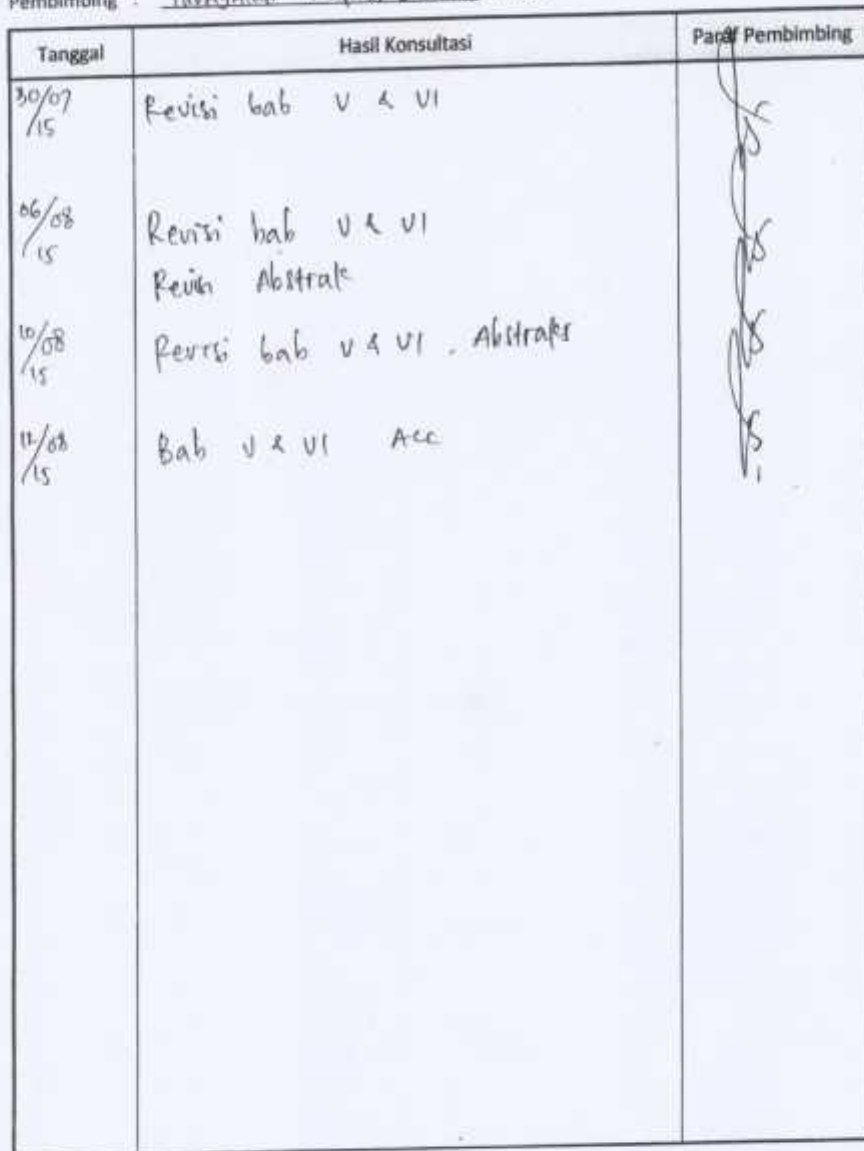 Pembimbing :
Tanggal Hasil Konsultasi Paraf Pembimbing
30/07/15 Revisi bab V & VI
06/08/15 Revisi bab V & VI
Revisi Abstrak
10/08/15 Revisi bab V & VI . Abstraks
12/08/15 Bab V & VI Acc